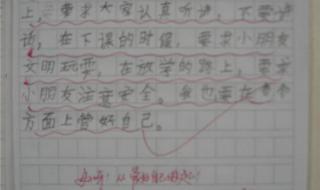 上，要求大家认真听讲，不要讲
话，在下课的时候，要求小朋友
文明玩耍，在放学的路上，要求
小朋友注意安全。我也要在各个
方面上管好自己。